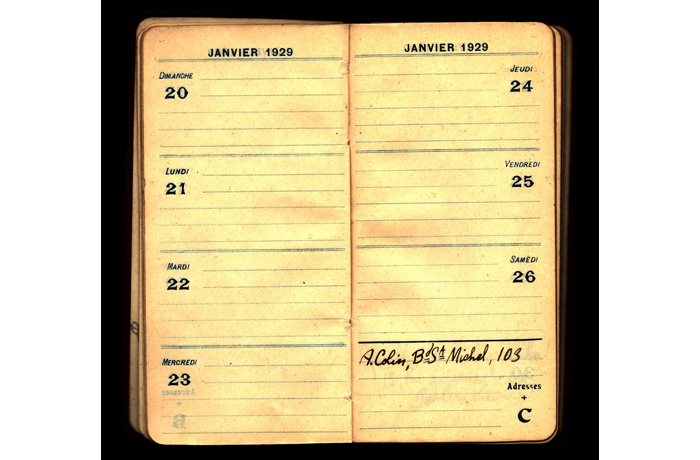 JANVIER 1929
DIMANCHE
20
LUNDI
21
MARDI
22
MERCREDI
23
JANVIER 1929
JEUDI
24
VENDREDI
25
SAMEDI
26
A. Colin, Bd St Michel, 103
Adresses
+
C